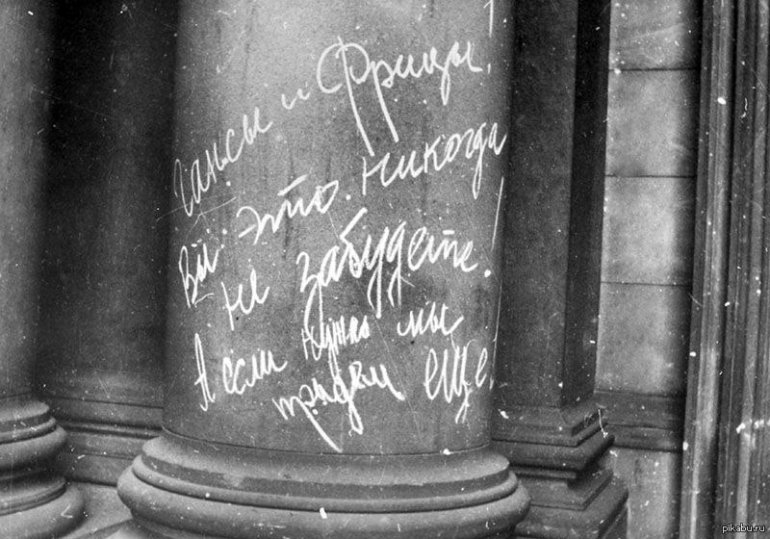 Гансы и Фрицы!
Вы это никогда
не забудете!
А если нужно мы
придем еще!
pikabu.ru